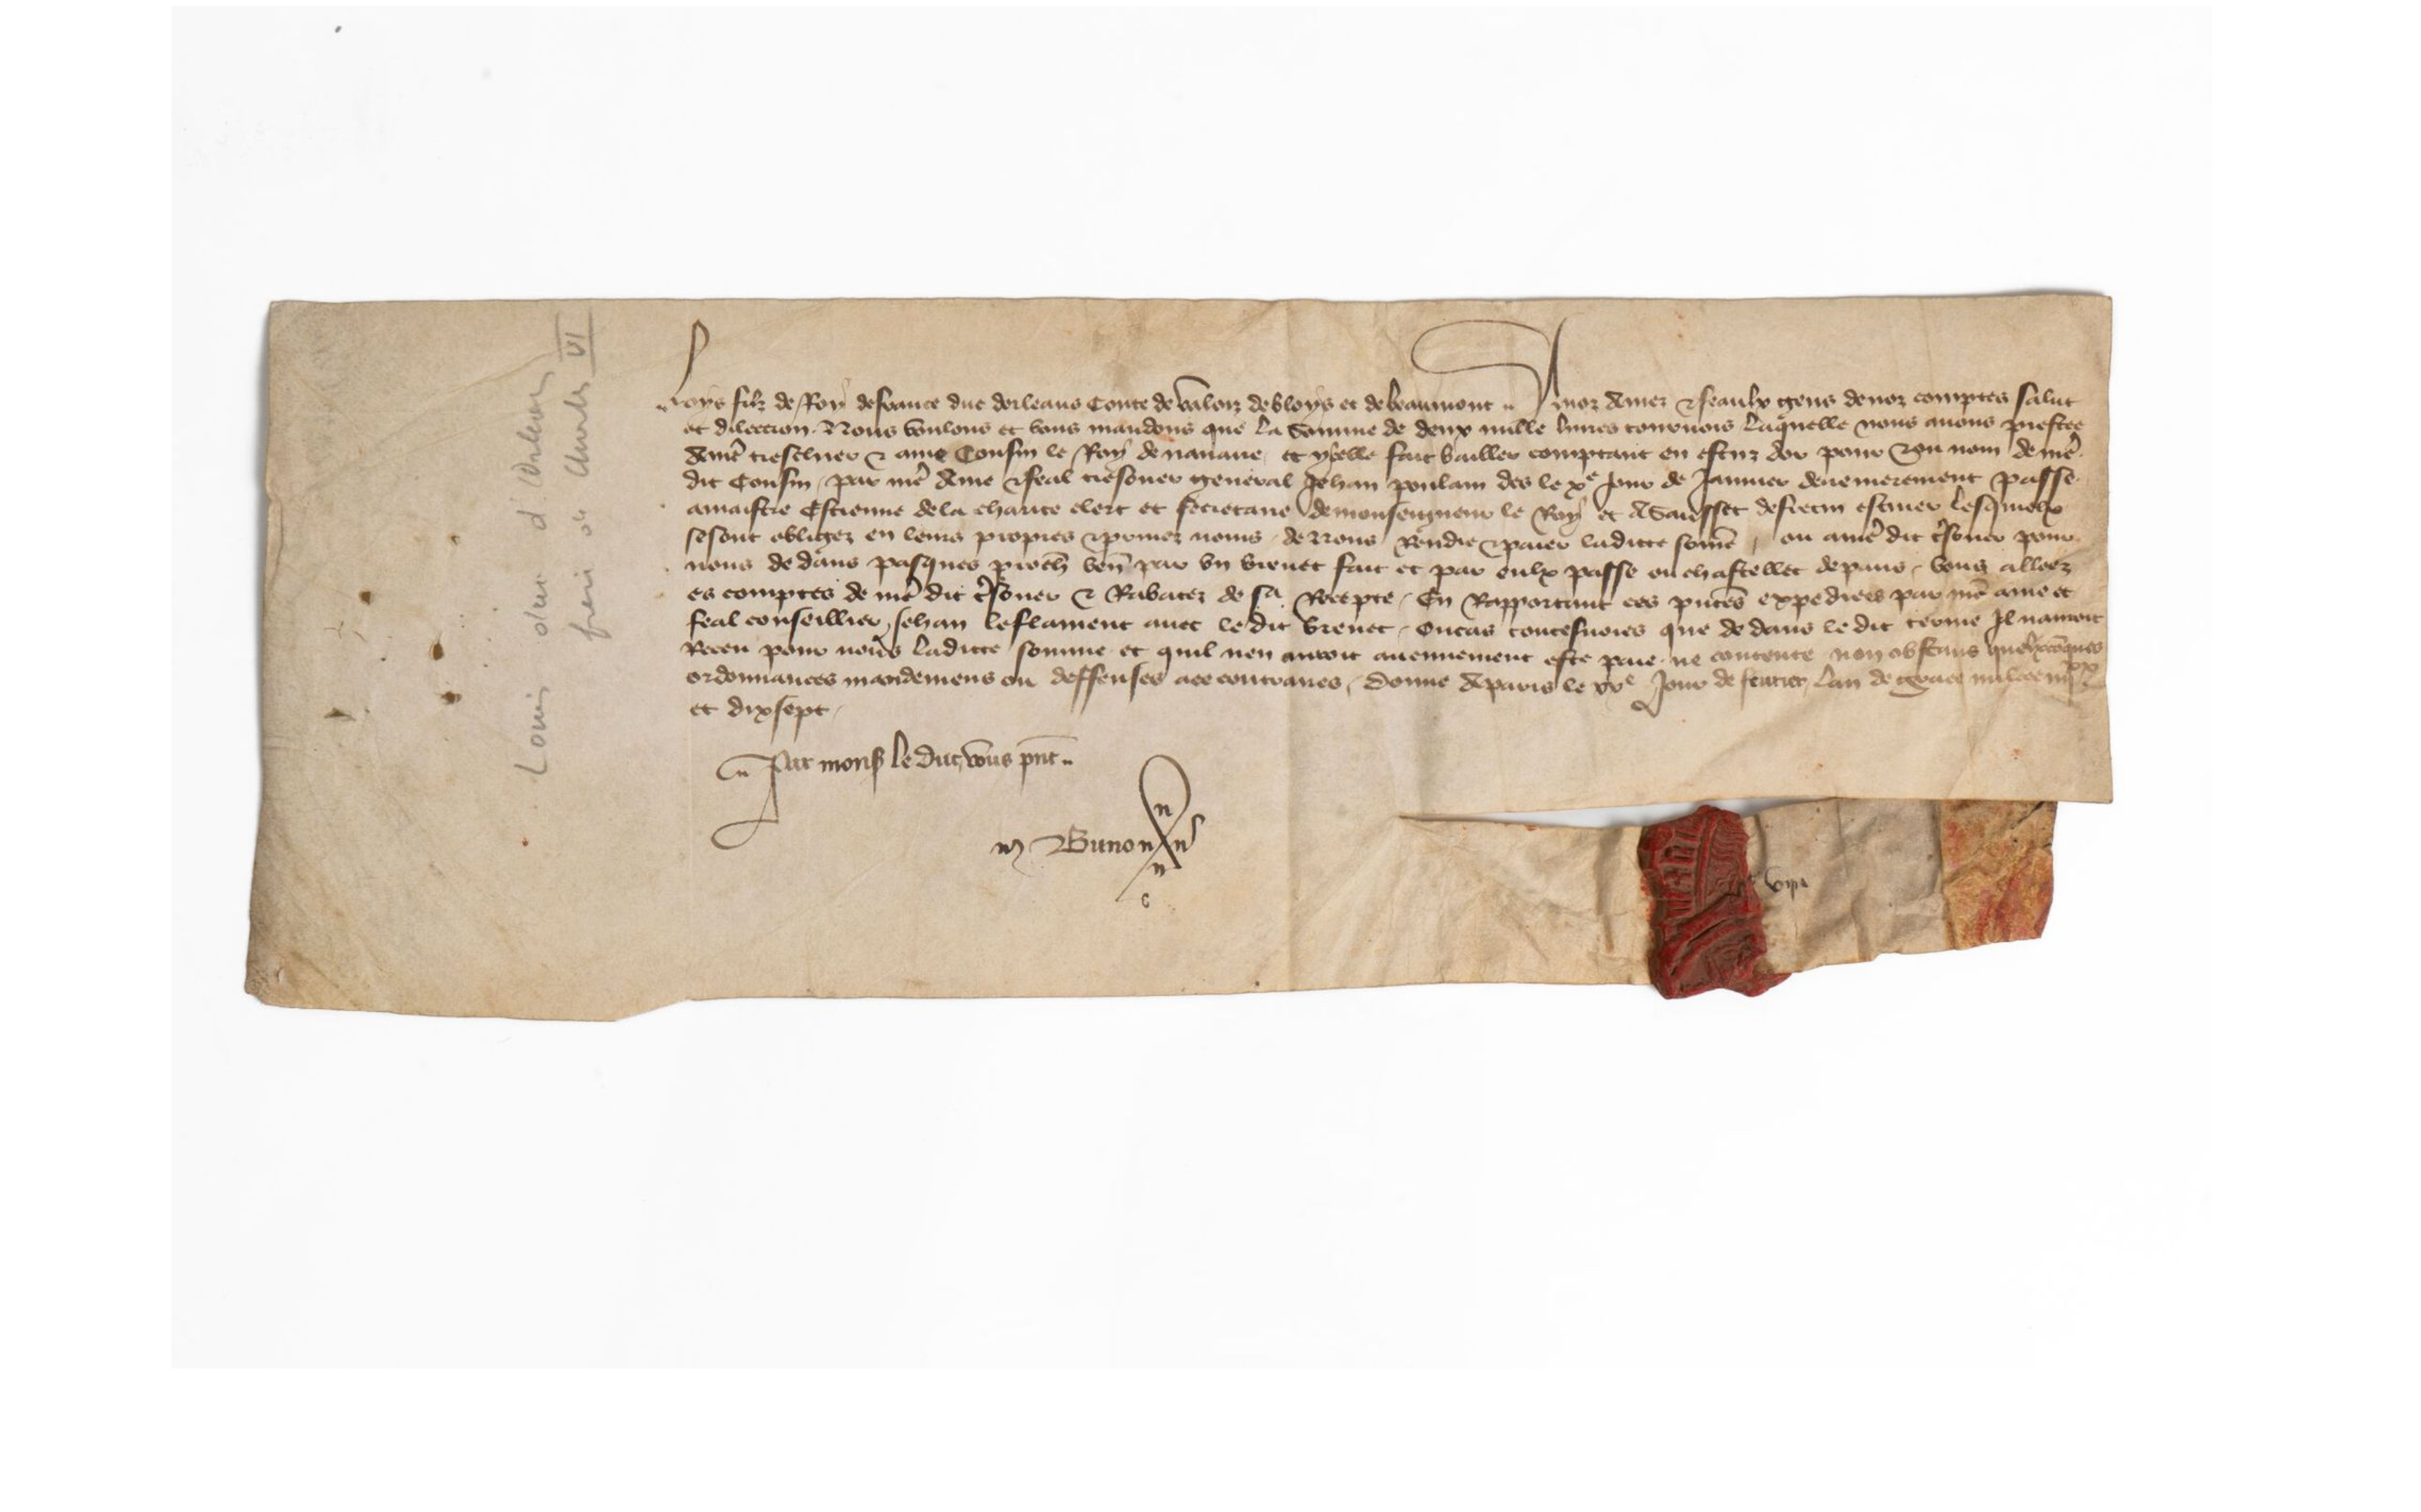 Loys filz de Roy de france duc dorleans Conte de valoiz de bloys et de beaumont A noz Amez & feaulx gens de noz comptes salut
et dilection. Nous voulons et vous mandons que la Somme de deux mille livres tournois laquelle nous avons prestee
A mre treschier & ame Cousin le Roy de navarre et ycelle fait baillier comptant en escuz dor pour & ou nom de mre
dit Cousin par mre Ame & feal tresorier general Jehan poulain des le xe jour de Janvier derrenierement passe
a maistre Estienne de la charite clerc et secretaire de monseigneur le Roy et A Saiesset escuier lesquielx
se sont obligez en leurs propres & privez noms de Nous Rendre & paier ladicte some ou a mre dit tsorier pour
nous dedans pasques proch ven par un brevet fait et par eulx passe ou chastellet de paris vous alloez
es comptes de mre dit tsorier & Rabatez de sa Recepte En Rapportant ces pntes expediees par mre ame et
feal conseillier Jehan le flament avec le dit brevet ou cas toutesvoies que dedans le dit terme Il nauroit
Receu pour nous ladicte somme et quil nen auroit aucunement este paie ne contente non obstans quelxcoques
ordonnances mandemens ou deffenses a ce contraires Donne A paris le xve Jour de fevrier Lan de grace mil ccc iiijxx
et dixsept
Par mons le duc vous pnt
m Buno
viij
Louis duc d'Orléans
frère de Charles VI